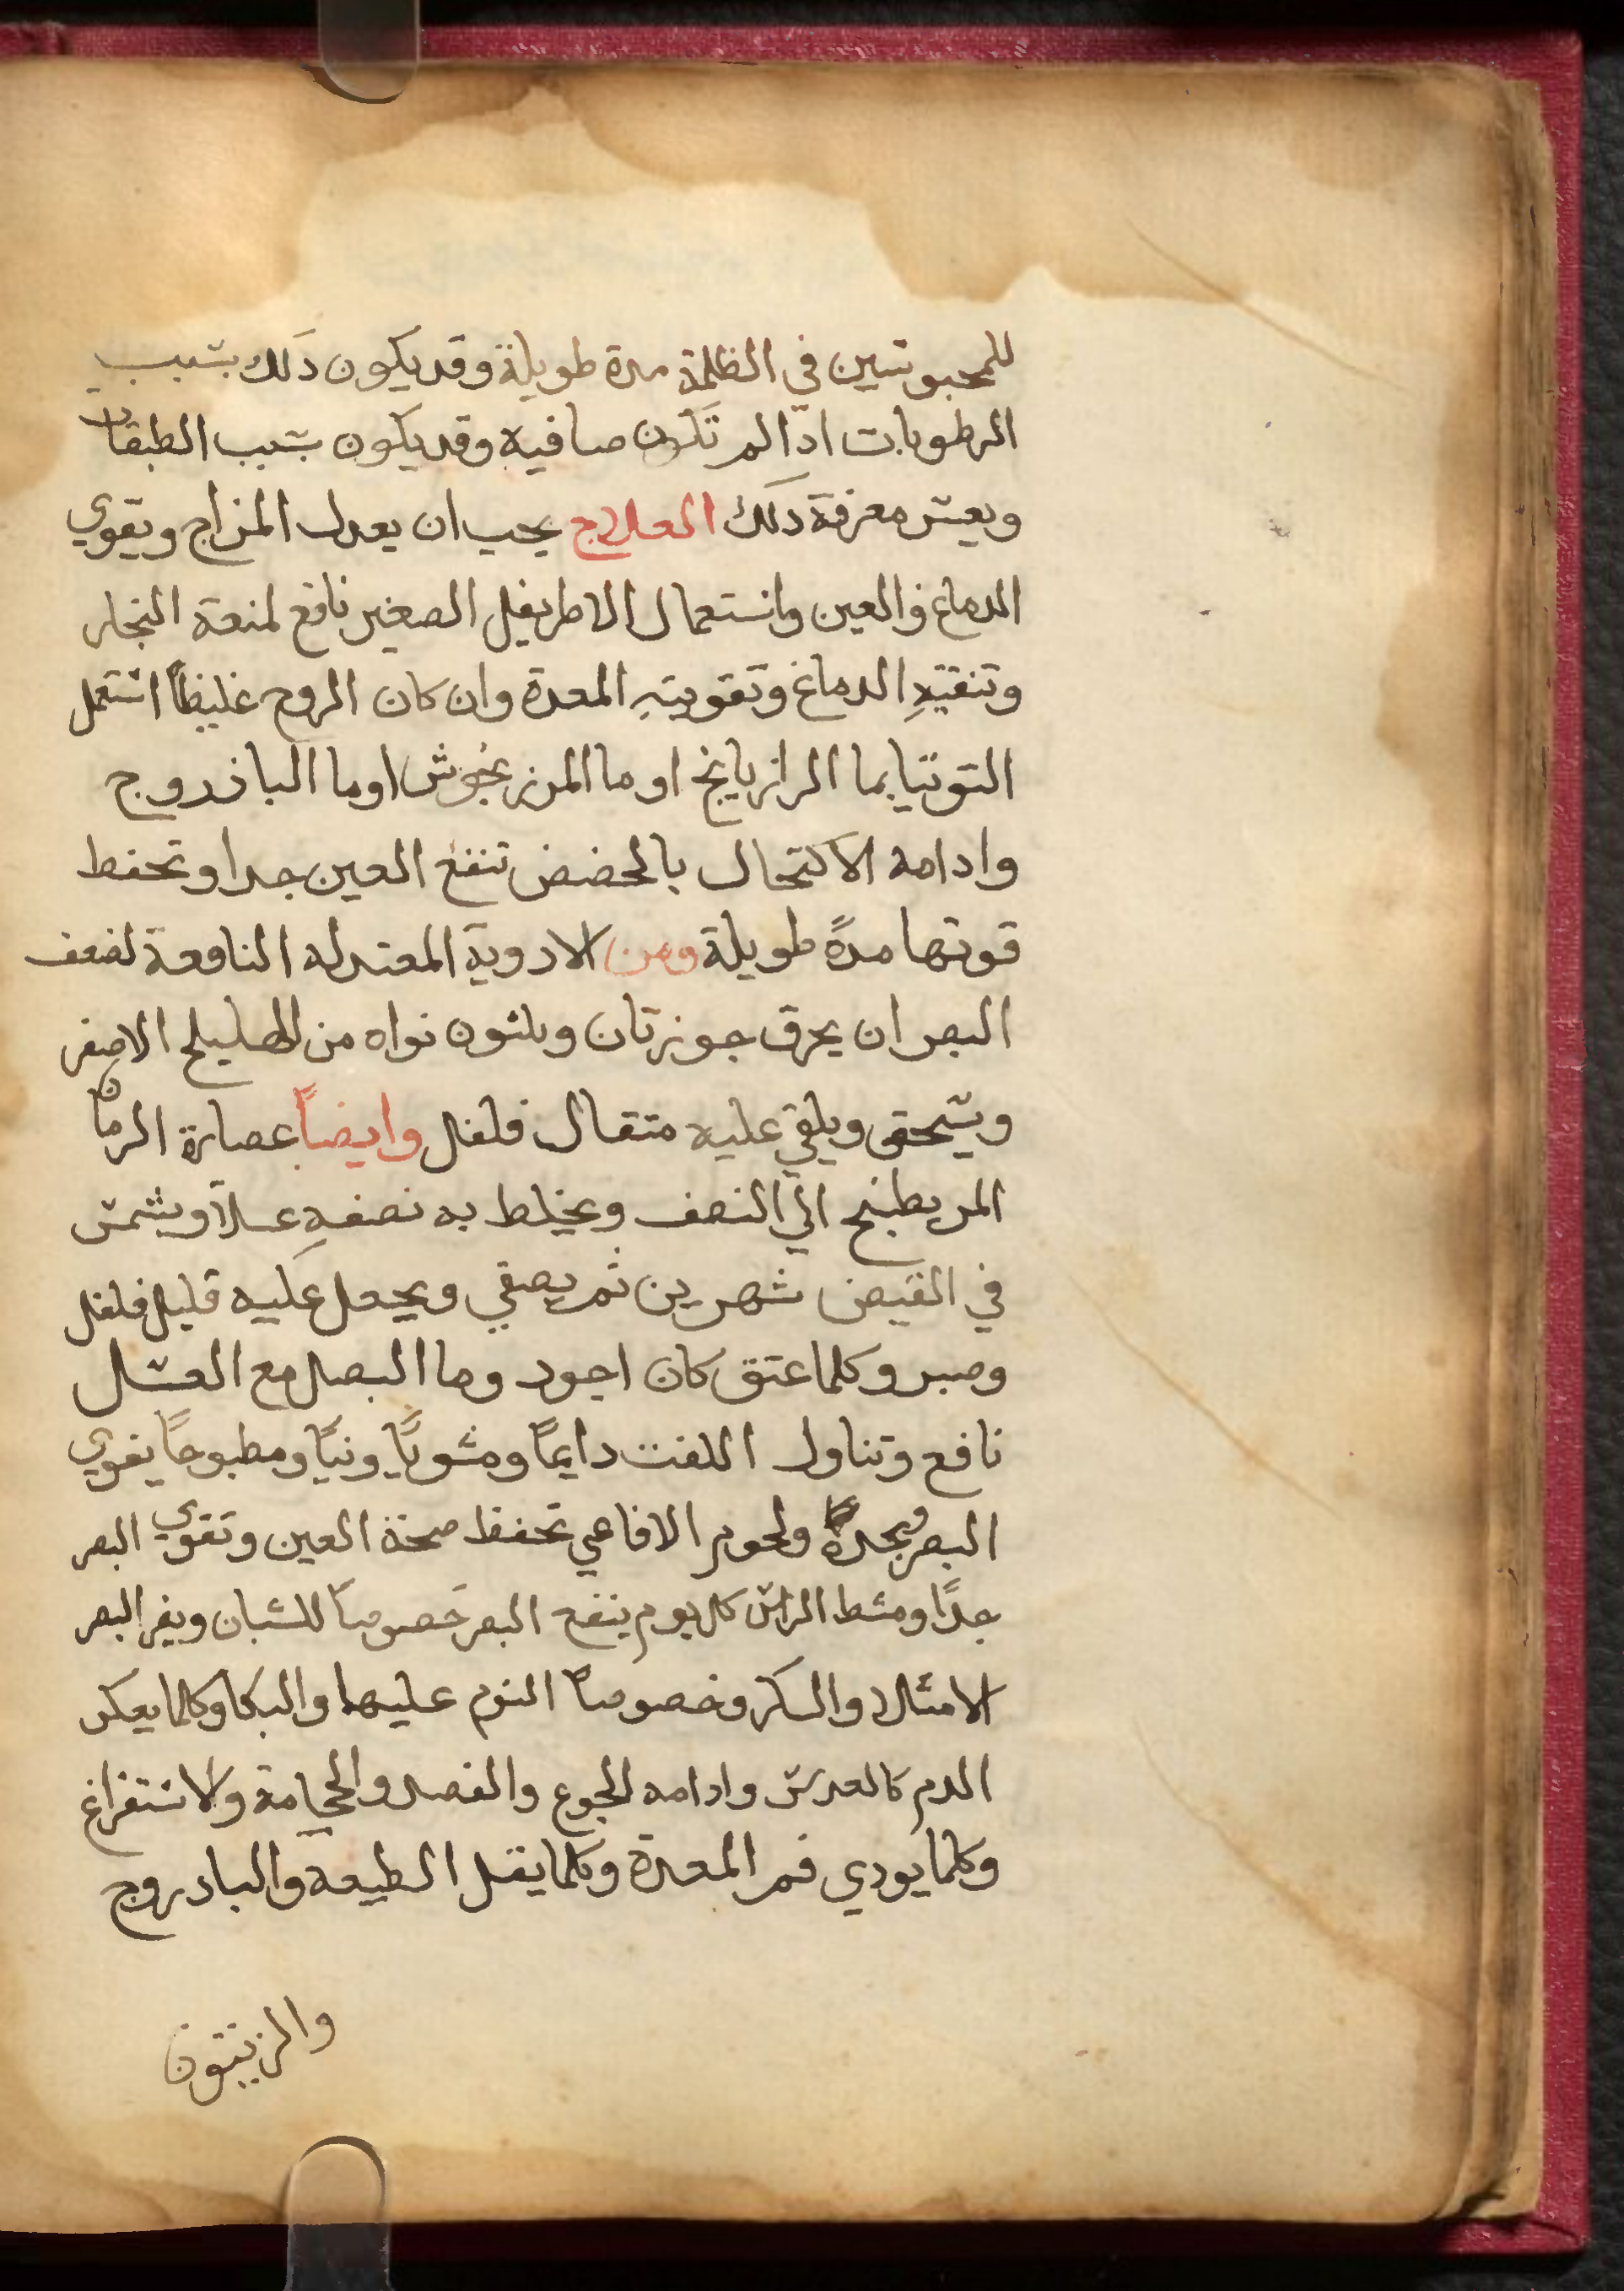 للمحبوسين في الظلمة مدة طويلة وقد يكون ذلك بسبب
الرطوبات اذا لم تكون صافيه وقد يكون بسبب الطبقات
ويعسر معرفة ذلك العلاج يجب ان يعدل المزاج ويقوي
الدماغ والعين واستعمال الاطريفل الصغير نافع لمنعة البخار
وتنقيةِ الدماغ وتقويتهِ المعدة وان كان الروح غليظاً استعمل
التوتيا بما الرازيانج او ما المرزنجوش اوما الباذروج
وادامه الاكتحال بالحضض تنفع العين جدا وتحفط
قوتها مدةً طويلة ومن الادوية المعتدله النافعة لضعف
البصر ان يحرق جوزتان وثلثون نواه من الهليلج الاصفر
ويسحق ويلقي عليه متقال فلفل وايضاً عصارة الرمان
المر يطبخ الي النصف ويخلط به نصفهِ عسلاً ويشمس
في القيض شهرين ثم يصفي ويجعل عليه قليل فلفل
وصبر وكلما عتق كان اجود وما البصل مع العسل
نافع وتناول اللفت دايماً ومشوياً ونياً ومطبوخاً يقوي
البصر ويحده ولحوم الافاعي تحفظ صحة العين وتقوي البصر
جداً ومشط الراس كل يوم ينفع البصر خصوصاً للشبان ويضر البصر
الامتلا والسكر وخصوصاً النوم عليها والبكا وكلما يعكر
الدم كالعدس وادامه الجوع والفصد والحجامة والاستفراغ
وكلما يودي فم المعدة وكلما يقل الطيعه والبادروج
والزيتون